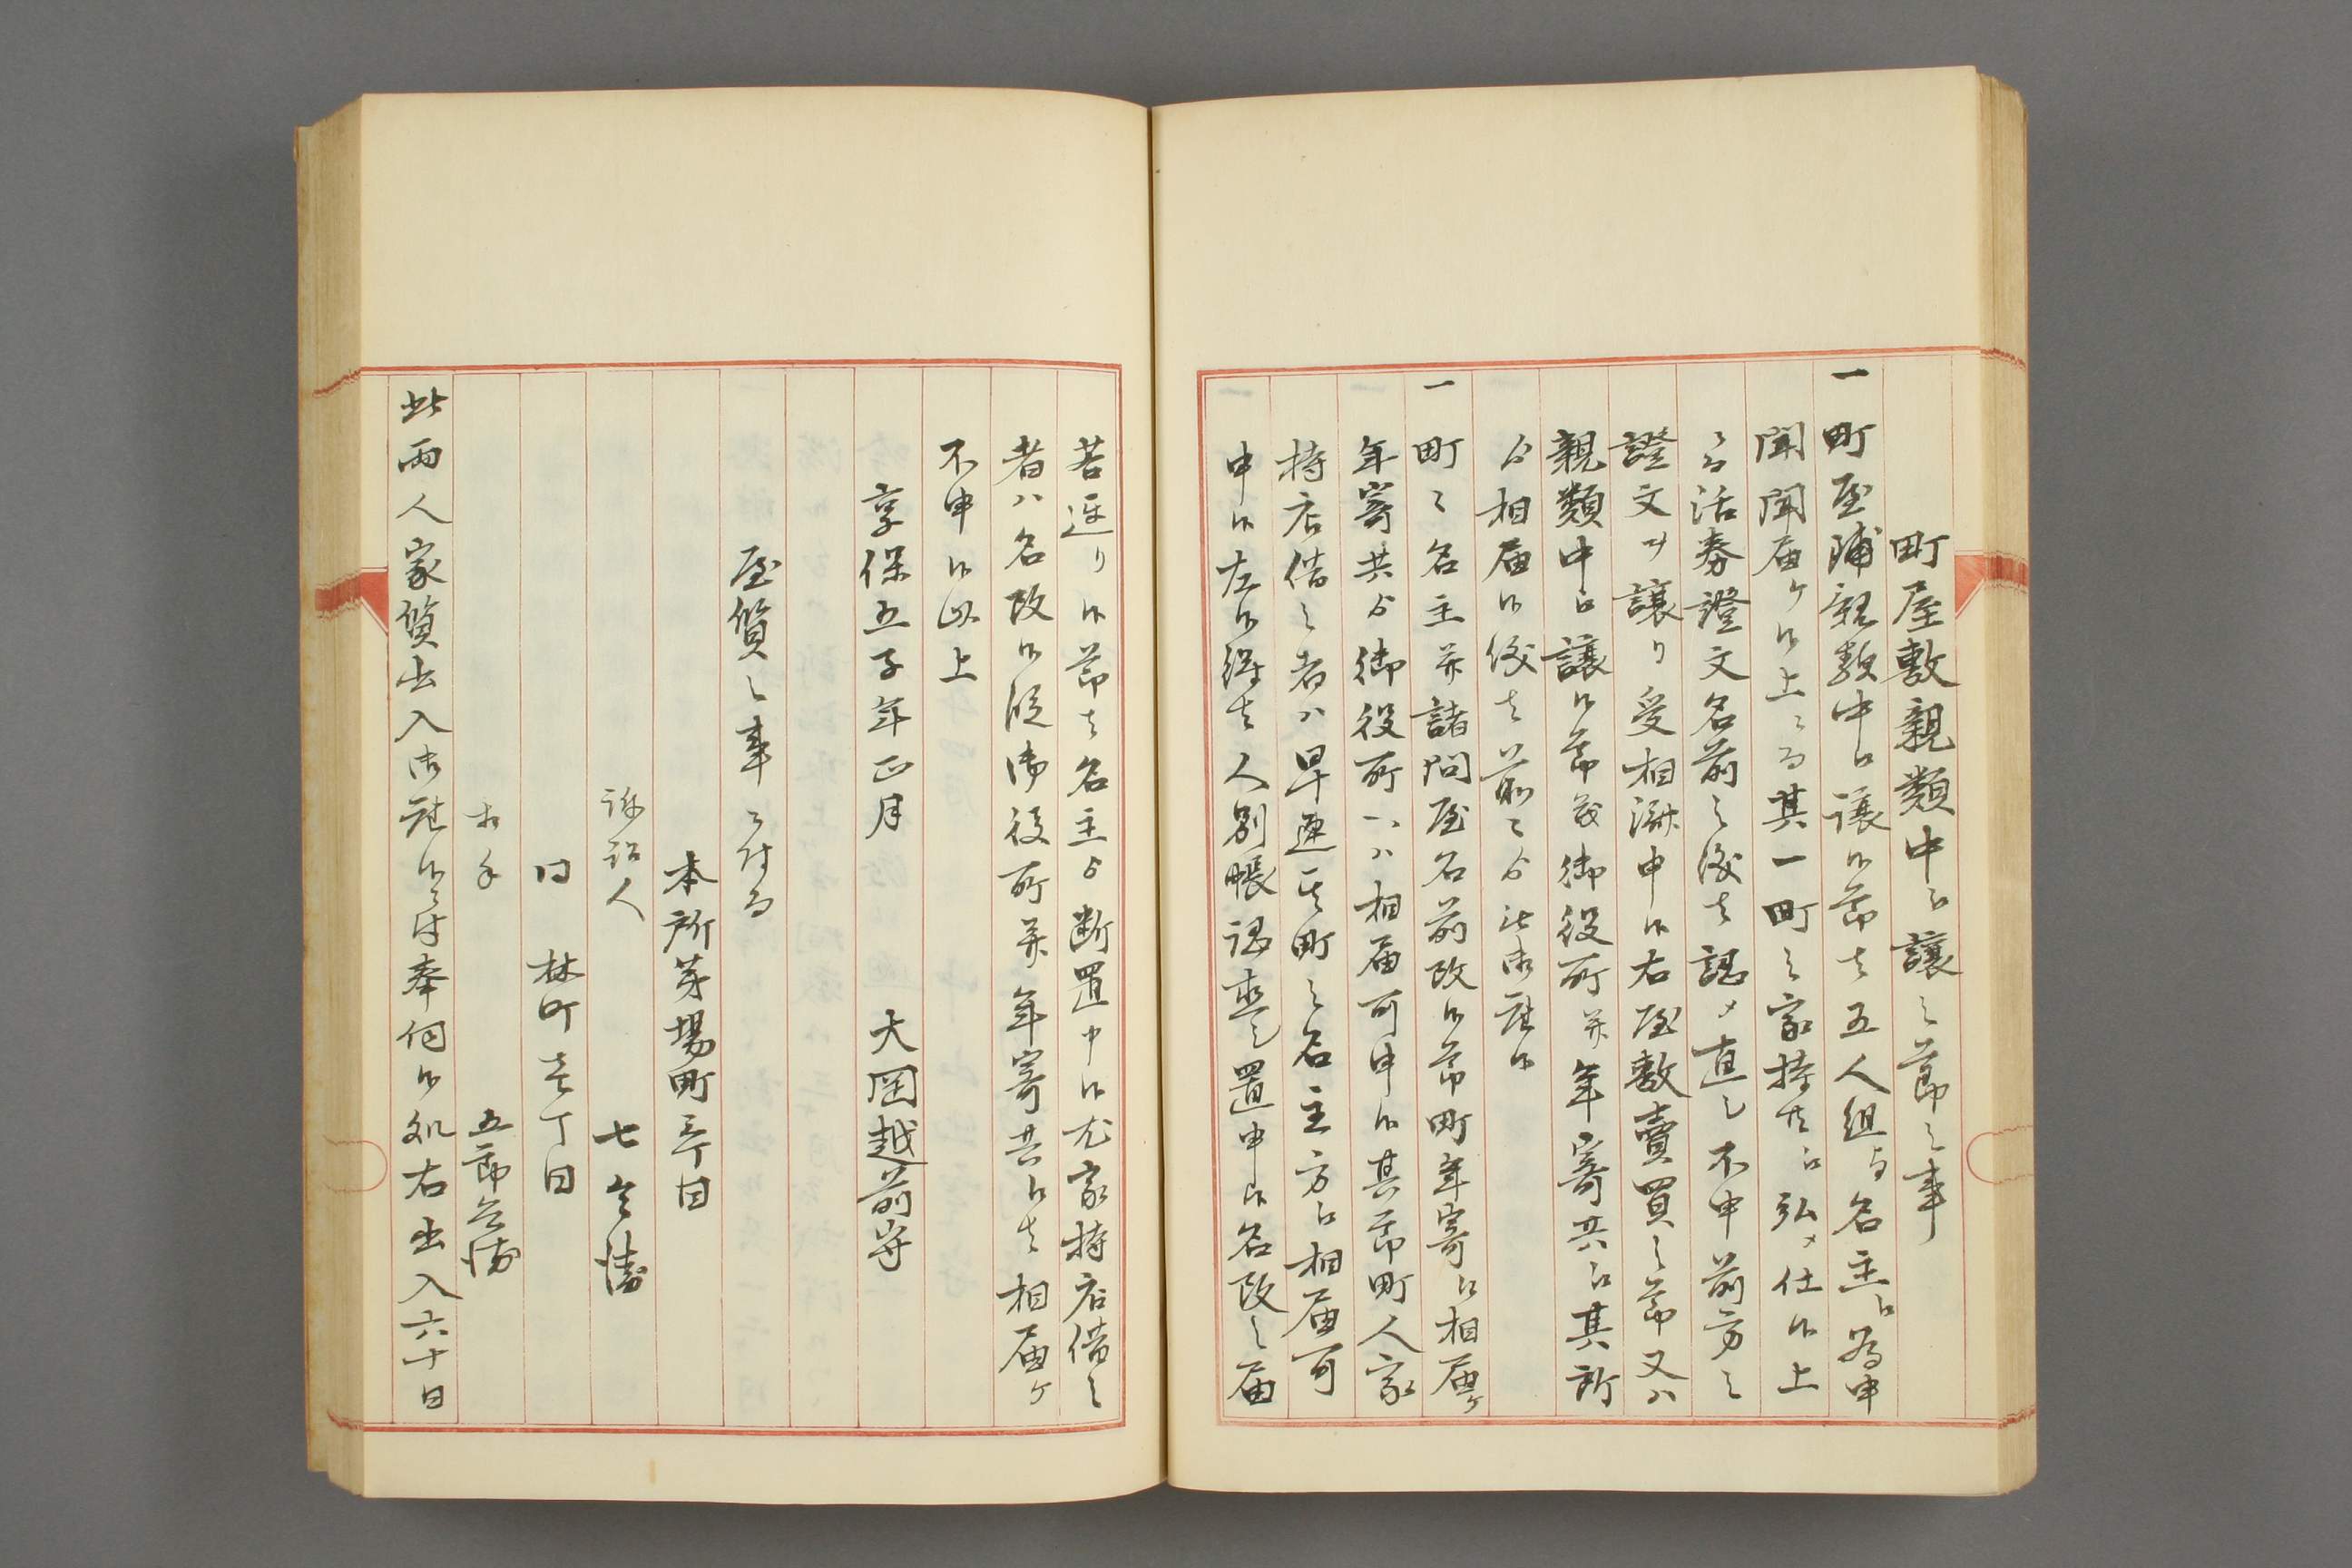 町屋敷親類中ゟ讓之節之事
一町屋鋪親類中ゟ譲候節者五人組ゟ名主ゟ為申
聞聞届ケ候上ニ而其一町之家持共ゟ弘メ仕候上
ニ而活券證文名前之儀者認メ直し不申前方之
證文ヲ讓り受相濟申候右屋敷賣買之節又ハ
親類中ゟ讓候節茂御役所并年寄共ゟ其所
ゟ相届候儀者前々ゟ無御座候
一町々名主并諸問屋名前改候節町年寄ゟ相届ケ
年寄共ゟ御役所へハ相届可申候其節町人家
持店借之者ハ早速其町之名主方ゟ相届可
申候左候得者人別帳認直し置申候名改之届
若遅り候節者名主ゟ断置申候尤家持店借之
者ハ名改候段御役所并年寄共ゟ者相届ケ
不申候以上
享保五子年正月
大岡越前守
屋質之事ニ付而
本所茅場町三丁目
訴訟人 七兵衛
同 林町壱丁目
相手 五郎兵衛
此両人家質出入御座候ニ付奉伺候処右出入六十日